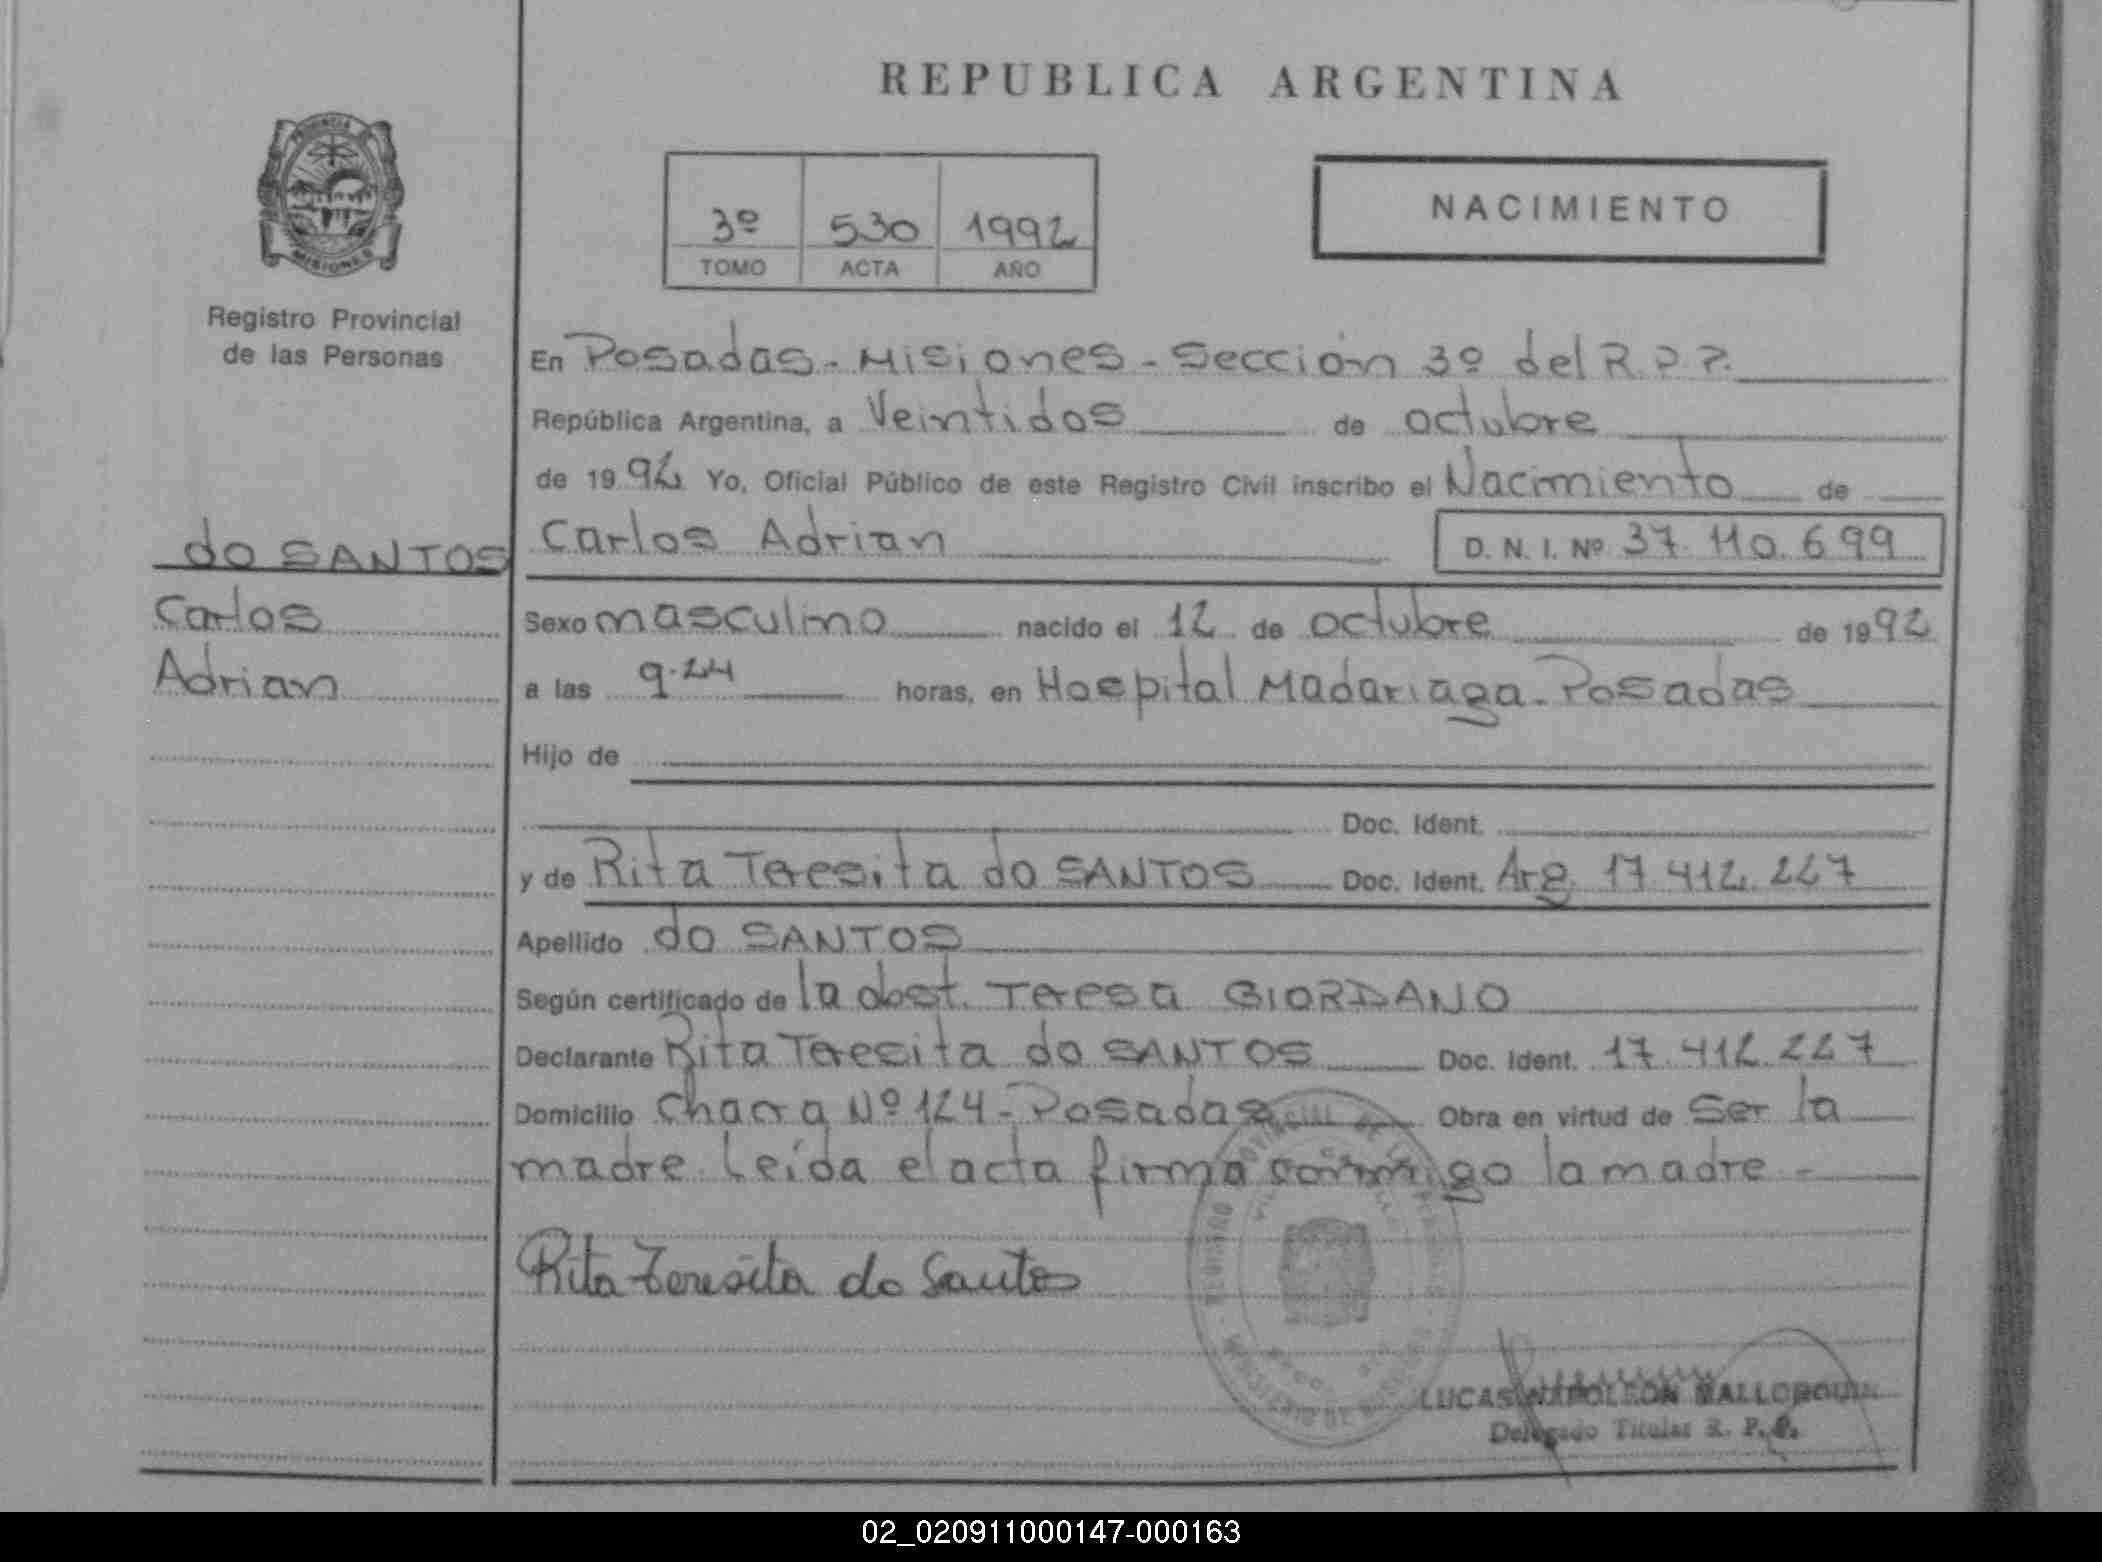 REPUBLICA ARGENTINA
PROVINCIA DE
MISIONES
Registro Provincial
de las Personas
3º 530 1992
TOMO ACTA AÑO
NACIMIENTO
En Posadas - Misiones - Sección 3º del R.P.P.
República Argentina, a Veintidos de octubre
de 1992 Yo, Oficial Público de este Registro Civil inscribo el Nacimiento de
Carlos Adrian D. N. I. Nº 37.110.699
do SANTOS
Carlos
Adrian
Sexo masculino nacido el 12 de octubre de 1992
a las 9.24 horas, en Hospital Madariaga - Posadas
Hijo de
Doc. Ident.
y de Rita Teresita do SANTOS Doc. Ident. Arg. 17.412.227
Apellido do SANTOS
Según certificado de la obst. Teresa GIORDANO
Declarante Rita Teresita do SANTOS Doc. Ident. 17.412.227
Domicilio Chacra Nº 124 - Posadas Obra en virtud de Ser la
madre. Leída el acta firma conmigo la madre -
Rita Teresita do Santos
LUCAS NAPOLEON MALLORQUIN
Delegado Titular R. P. P.
02_020911000147-000163